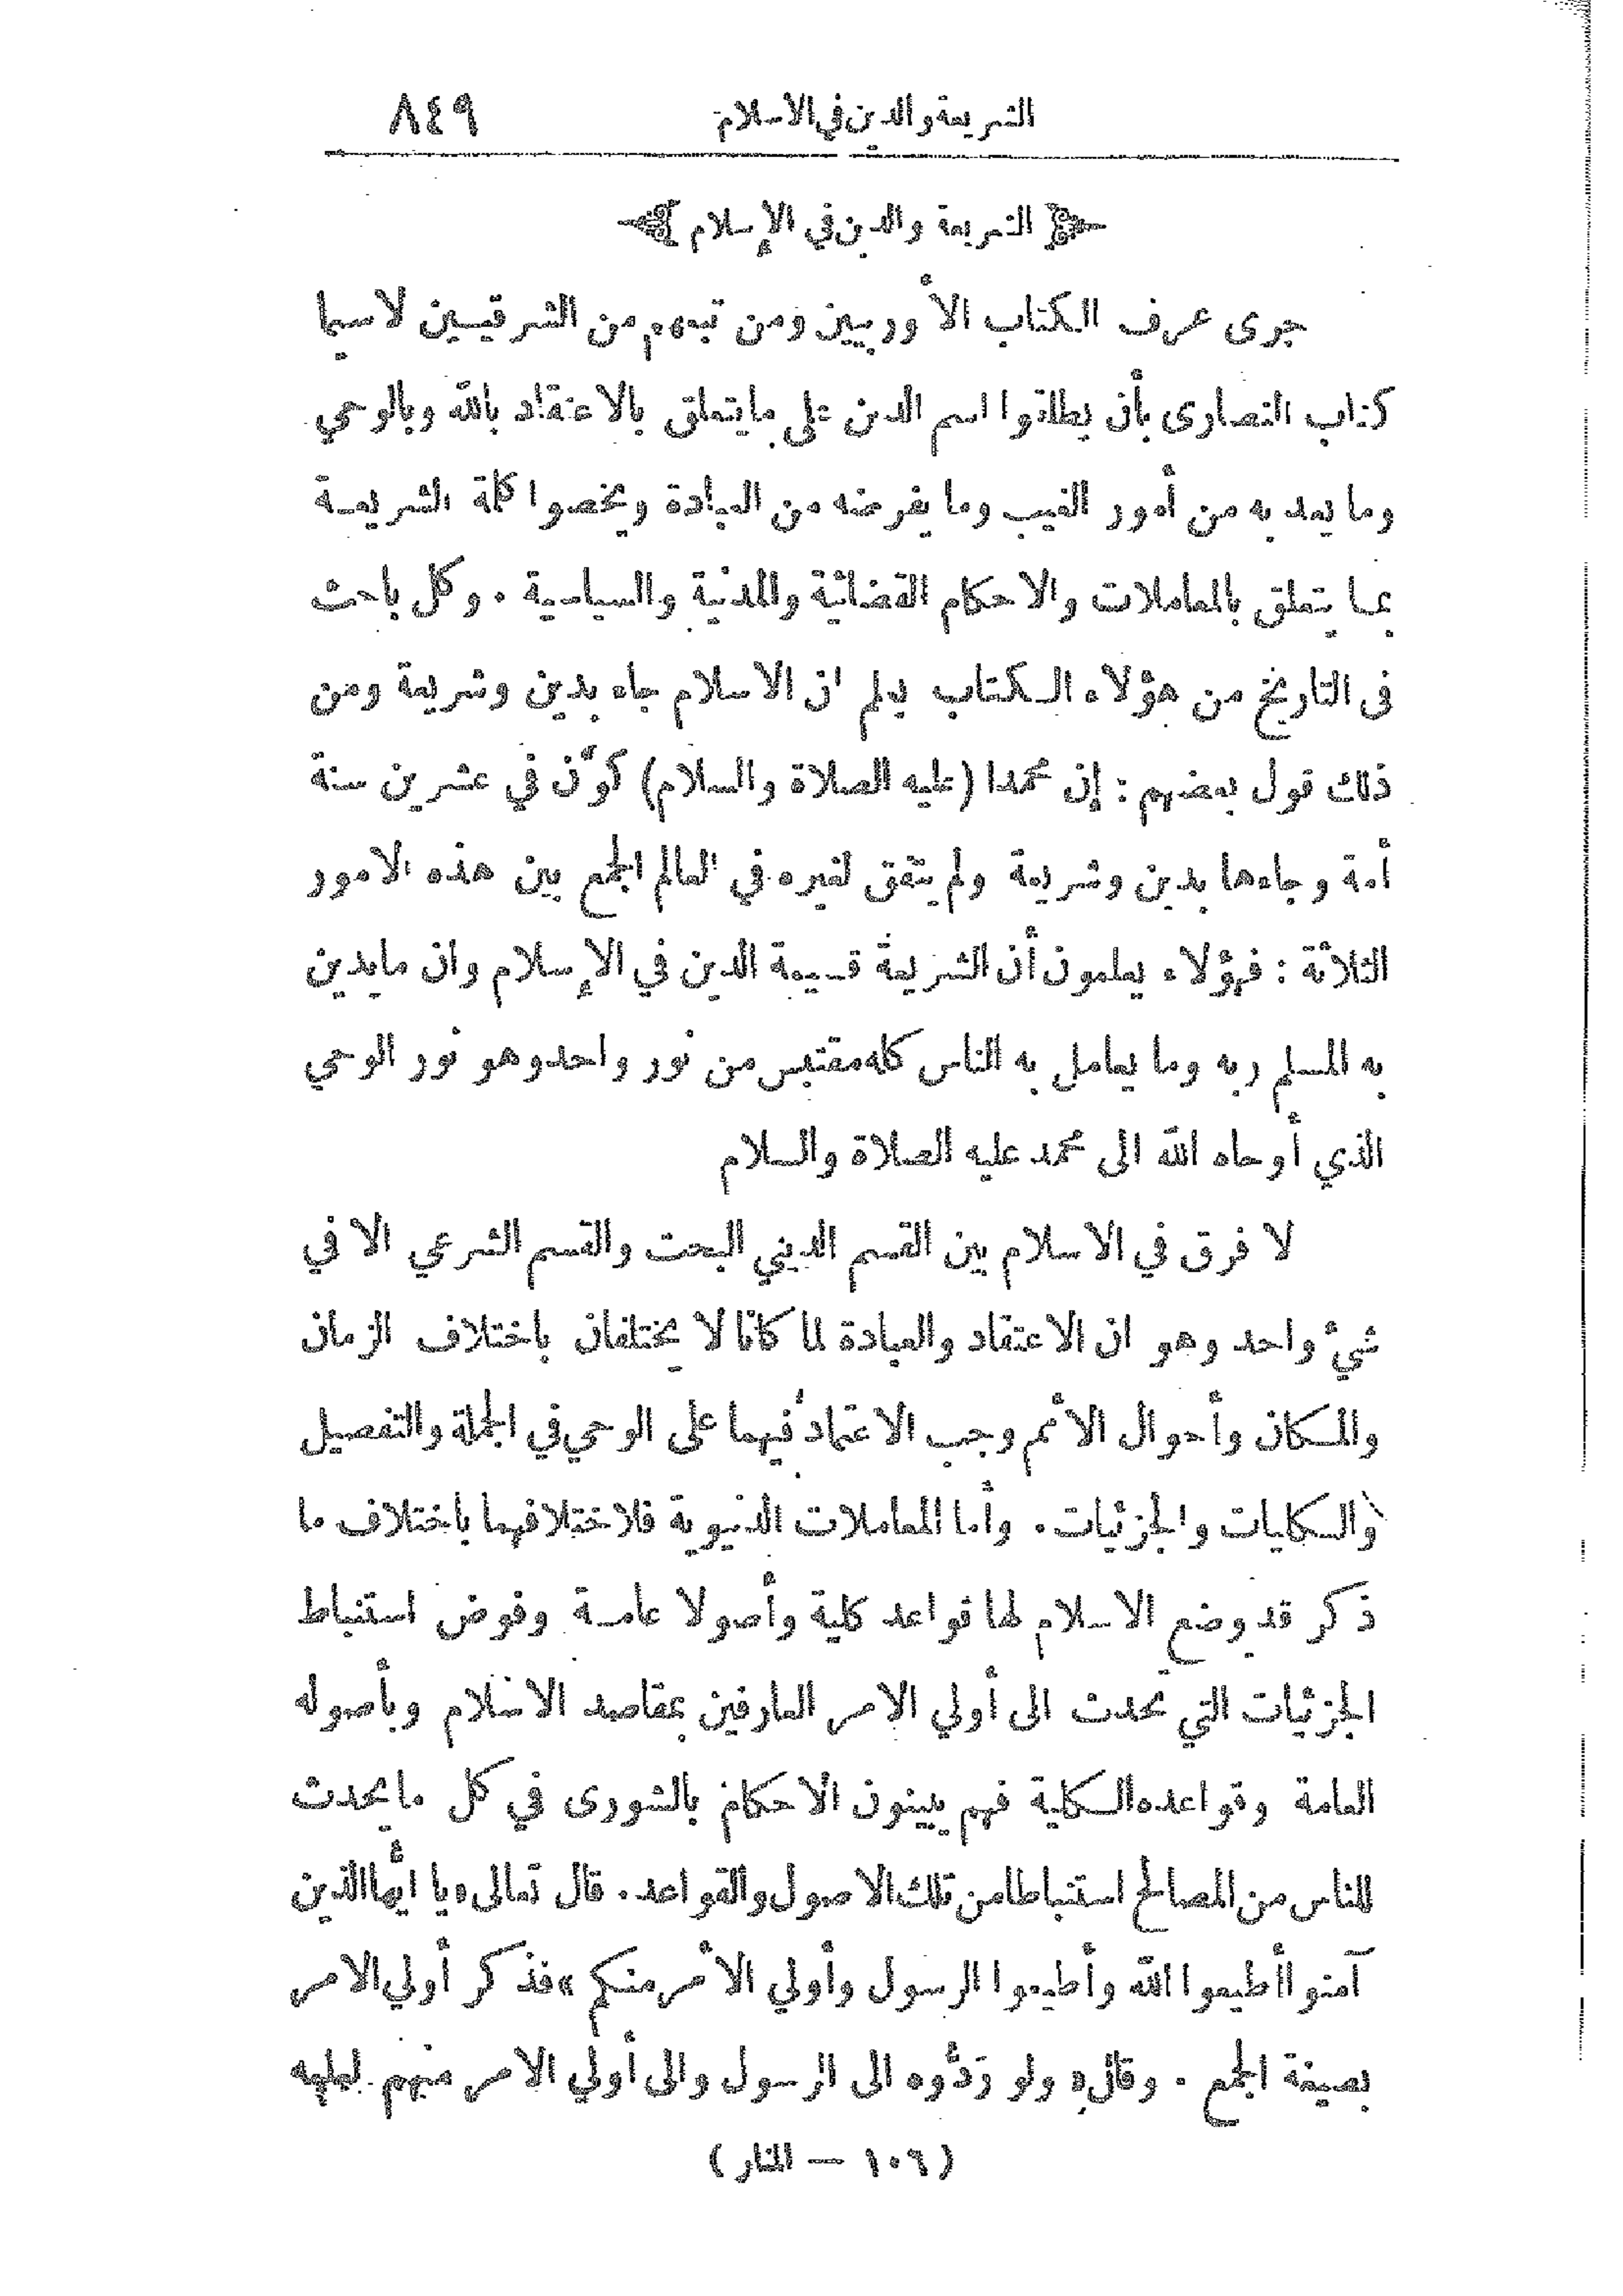 الشريعة والدين في الاسلام ٨٤٩
الشريعة والدين في الإسلام
جرى عرف الكتاب الأوربيين ومن تبعهم من الشرقيين لاسيما
كتاب النصارى بأن يطلقوا اسم الدين على مايتعلق بالاعتقاد بالله وبالوحي
وما يعد به من أمور الغيب وما يفرضه من العبادة ويخصوا كلمة الشريعة
بما يتعلق بالمعاملات والاحكام القضائية والمدنية والسياسية . وكل باحث
في التاريخ من هؤلاء الكتاب يعلم ان الاسلام جاء بدين وشريعة ومن
ذلك قول بعضهم : إن محمدا (عليه الصلاة والسلام) كوَّن في عشرين سنة
أمة وجاءها بدين وشريعة ولم يتفق لغيره في العالم الجمع بين هذه الامور
الثلاثة : فهؤلاء يعلمون أن الشريعة قسيمة الدين في الإسلام وان مايدين
به المسلم ربه وما يعامل به الناس كله مقتبس من نور واحد وهو نور الوحي
الذي أوحاه الله الى محمد عليه الصلاة والسلام
لا فرق في الاسلام بين القسم الديني البحت والقسم الشرعي الا في
شيء واحد وهو ان الاعتقاد والعبادة لما كانا لا يختلفان باختلاف الزمان
والمكان وأحوال الأمم وجب الاعتماد فيهما على الوحي في الجملة والتفصيل
والكليات والجزئيات . وأما المعاملات الدنيوية فلاختلافهما باختلاف ما
ذكر قد وضع الاسلام لها قواعد كلية وأصولا عامة وفوض استنباط
الجزئيات التي تحدث الى أولي الامر العارفين بمقاصد الاسلام وبأصوله
العامة وقواعده الكلية فهم يبينون الاحكام بالشورى في كل ما يحدث
للناس من المصالح استنباطا من تلك الاصول والقواعد . قال تعالى « يا أيها الذين
آمنوا أطيعوا الله وأطيعوا الرسول وأولي الأمر منكم » فذكر أولي الامر
بصيغة الجمع . وقال « ولو رَدُّوه الى الرسول والى أولي الامر منهم لعلمه
( ١٠٦ — المنار )